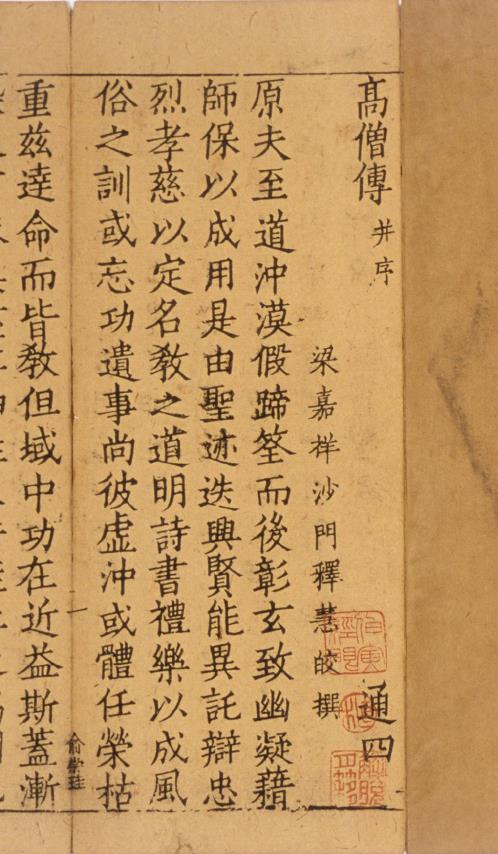 髙僧傳 并序 通四
梁嘉祥沙門釋慧皎撰
原夫至道沖漠假蹄筌而後彰玄致幽凝藉
師保以成用是由聖迹迭興賢能異託辯忠
烈孝慈以定名教之道明詩書禮樂以成風
俗之訓或忘功遺事尚彼虛沖或體任榮枯
重茲達命而皆教但域中功在近益斯蓋漸